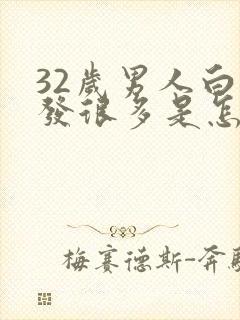 32歲男人白
發很多是怎
梅賽德斯-奔馳